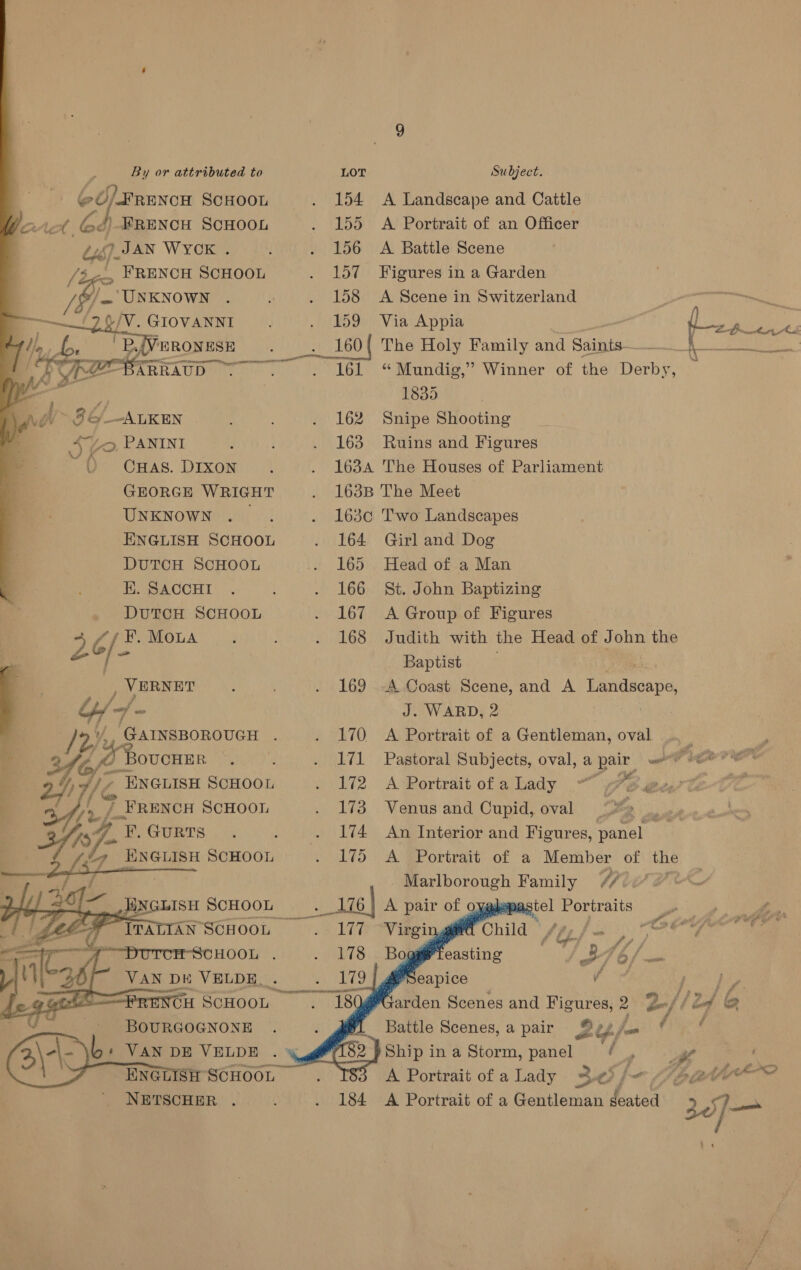 9
By or attributed to LOT Subject.
60/ FRENCH SCHOOL . 154 A Landscape and Cattle
FRENCH SCHOOL . 155 A Portrait of an Officer
JAN WYCK . . 156 A Battle Scene
FRENCH SCHOOL . 157 Figures in a Garden
UNKNOWN . . 158 A Scene in Switzerland
V. GIOVANNI . . 159 Via Appia
P. VERONESE . . 160 The Holy Family and Saints
BARRAUD . . 161 “Mundig,” Winner of the Derby,
1835
36/- ALKEN . . 162 Snipe Shooting
PANINI . . 163 Ruins and Figures
CHAS. DIXON . . 163A The Houses of Parliament
GEORGE WRIGHT . 163B The Meet
UNKNOWN . . 163C Two Landscapes
ENGLISH SCHOOL . 164 Girl and Dog
DUTCH SCHOOL . 165 Head of a Man
E. SACCHI . . 166 St. John Baptizing
DUTCH SCHOOL . 167 A Group of Figures
26/- F. MOLA . . 168 Judith with the Head of John the
Baptist
VERNET . . 169 A Coast Scene, and A Landscape,
J. WARD, 2
GAINSBOROUGH . . 170 A Portrait of a Gentleman, oval
BOUCHER . . 171 Pastoral Subjects, oval, a pair
ENGLISH SCHOOL . 172 A Portrait of a Lady
FRENCH SCHOOL . 173 Venus and Cupid, oval
F. GURTS . . 174 An Interior and Figures, panel
ENGLISH SCHOOL . 175 A Portrait of a Member of the
Marlborough Family
ENGLISH SCHOOL . 176 A pair of oval pastel Portraits
ITALIAN SCHOOL . 177 Virgin and Child
DUTCH SCHOOL . . 178 Boors feasting
VAN DE VELDE . . 179 Seapice
FRENCH SCHOOL . 180 Garden Scenes and Figures, 2
BOURGOGNONE . . Battle Scenes, a pair
VAN DE VELDE . 182 Ship in a Storm, panel
ENGLISH SCHOOL . 183 A Portrait of a Lady
NETSCHER . . 184 A Portrait of a Gentleman seated 30/-